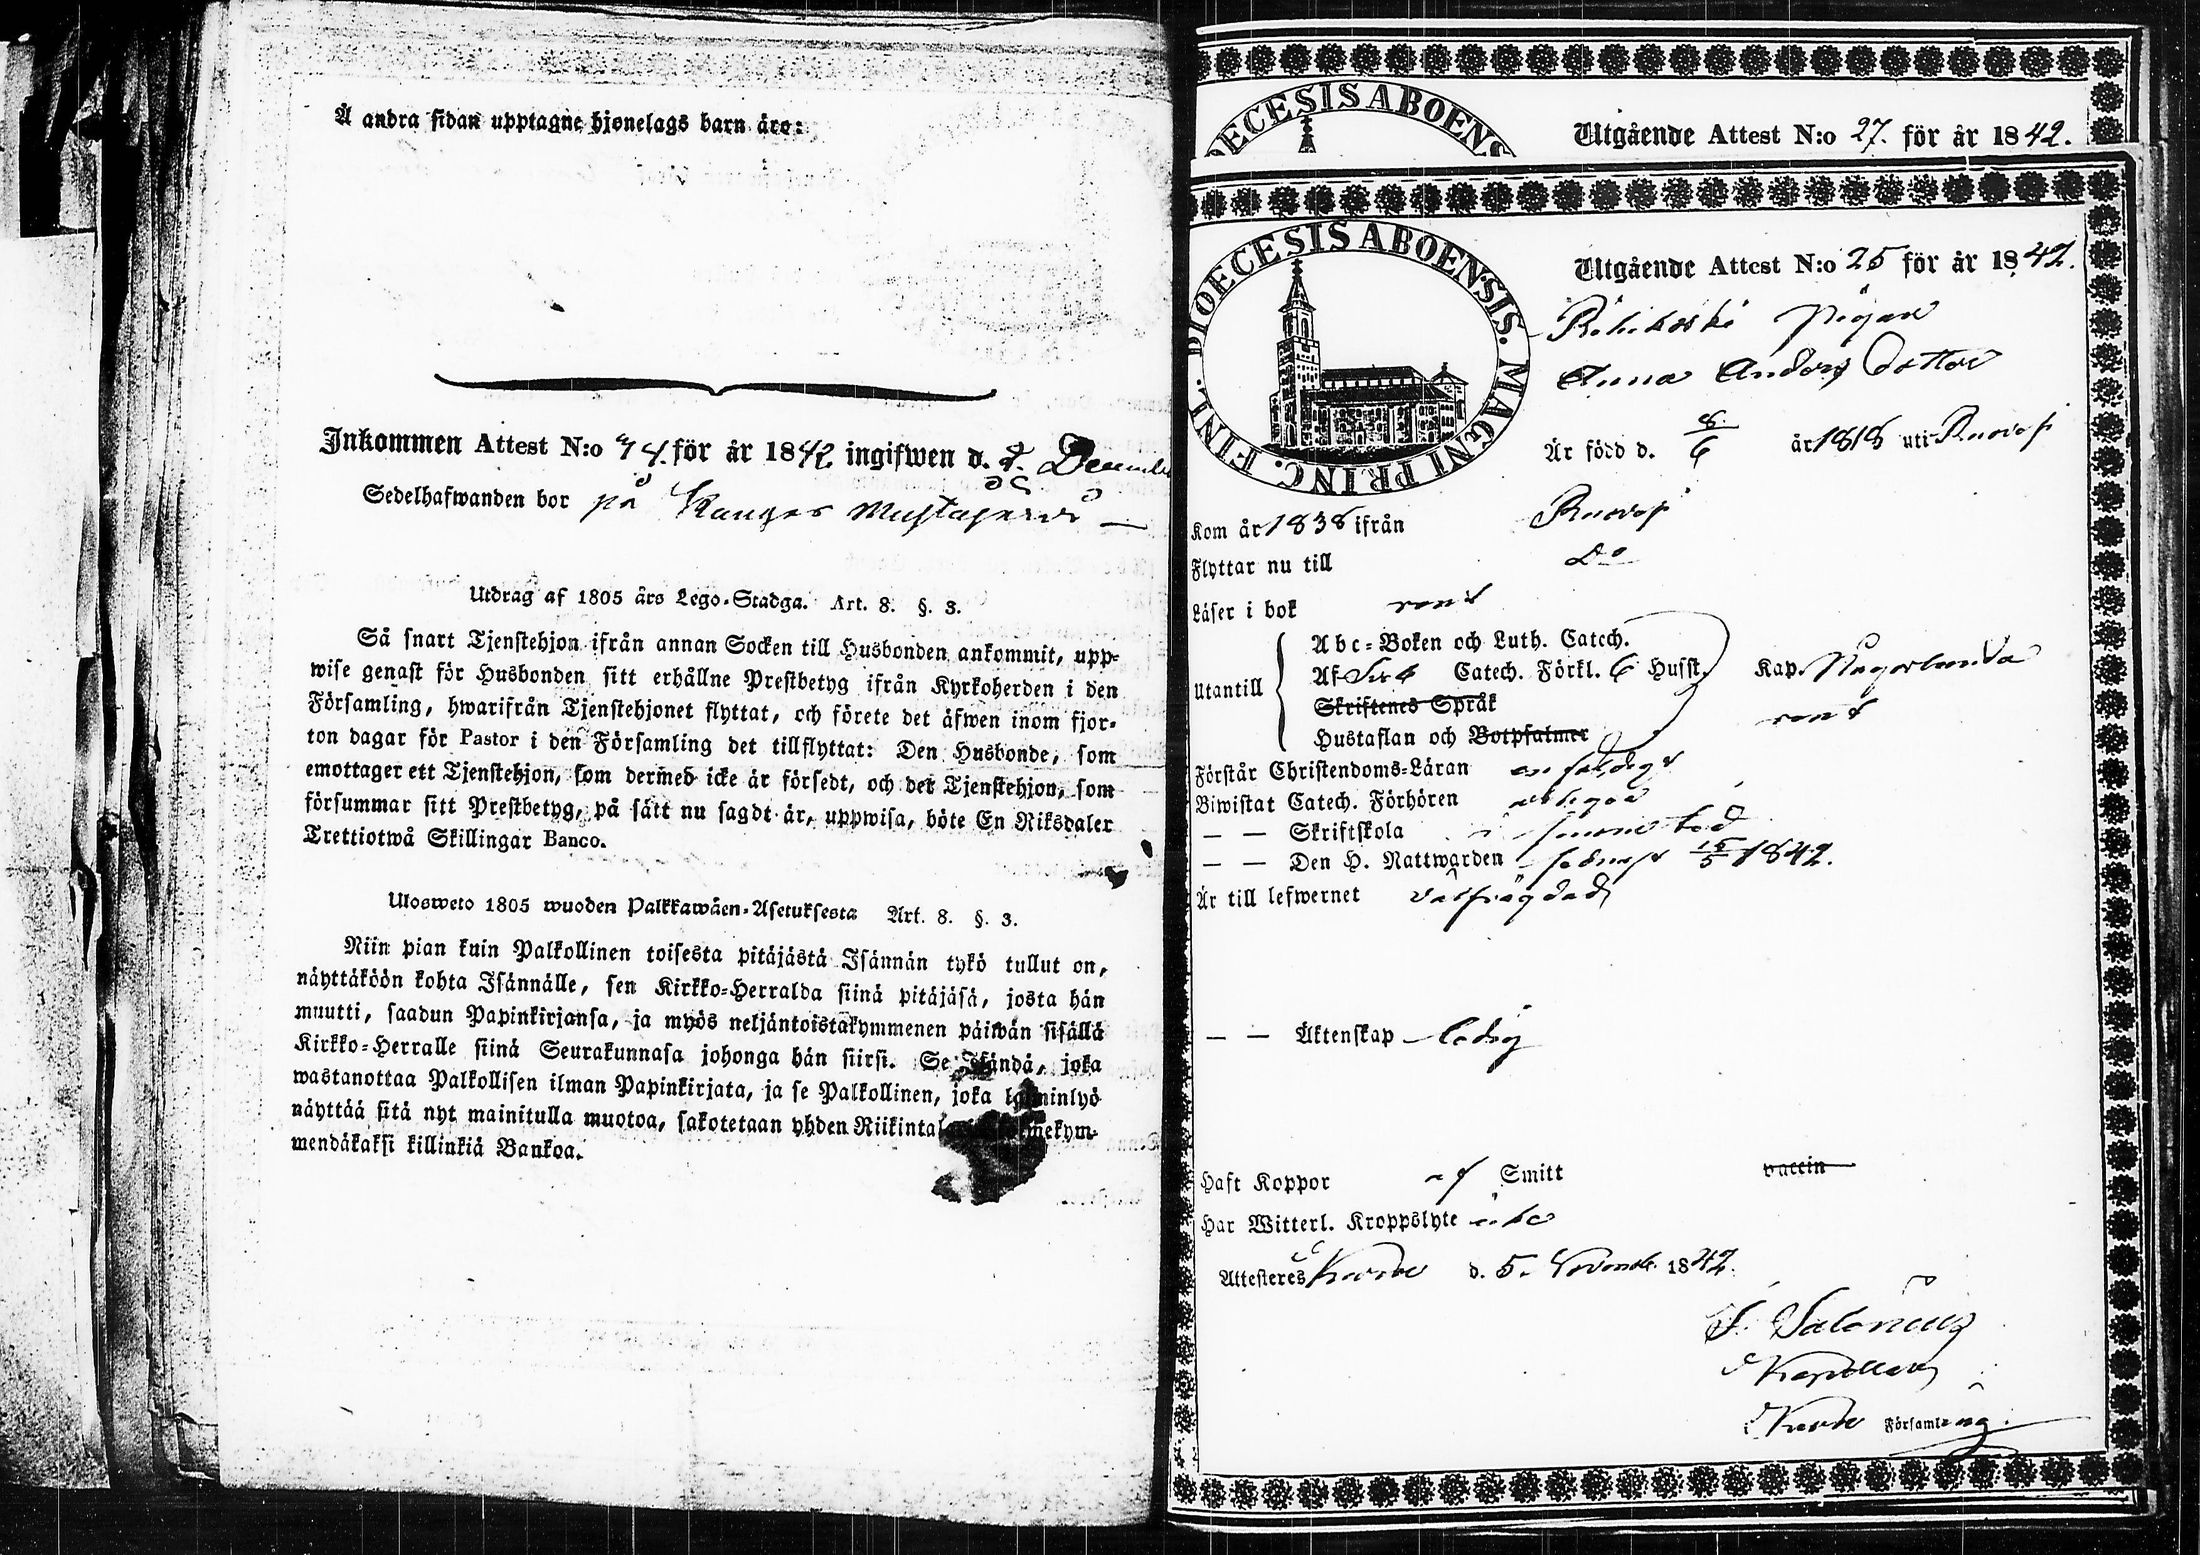 Å andra sidan upptagne hjonelags barn äro:
Inkommen Attest N:o 74. för år 1842 ingifwen d. 2. December
Sedelhafwanden bor på
Utdrag af 1805 års Lego-Stadga. Art. 8. §. 3.
Så snart Tjenstehjon ifrån annan Socken till Husbonden ankommit, upp-
wise genast för Husbonden sitt erhållne Prestbetyg ifrån Kyrkoherden i den
Församling, hwarifrån Tjenstehjonet flyttat, och förete det äfwen inom fjor-
ton dagar för Pastor i den Församling det tillflyttat: Den Husbonde, som
emottager ett Tjenstehjon, som dermed icke är försedt, och det Tjenstehjon, som
försummar sitt Prestbetyg, på sätt nu sagdt är, uppwisa, böte En Riksdaler
Trettiotwå Skillingar Banco.
Ulosweto 1805 wuoden Palkkawäen-Asetuksesta Art. 8. §. 3.
Niin pian kuin Palkollinen toisesta pitäjästä Isännän tykö tullut on,
näyttäköön kohta Isännälle, sen Kirkko-Herralda siinä pitäjäsä, josta hän
muutti, saadun Papinkirjansa, ja myös neljäntoistakymmenen päiwän sisällä
Kirkko-Herralle siinä Seurakunnasa johonga hän siirsi. Se Isändä, joka
wastanottaa Palkollisen ilman Papinkirjata, ja se Palkollinen, joka laiminlyö
näyttää sitä nyt mainitulla muotoa, sakotetaan yhden Riikintal
mendäkaksi killinkiä Bankoa.
DIOECESIS ABOENS
Utgående Attest N:o 27. för år 1842.
DIOECESIS ABOENSIS. MAGNI PRINC. FINL.
Utgående Attest N:o 25 för år 1842.
Pigan
Anna Anders Dotter
Är född d. 8/6 år 1818 uti Ruovesi
Kom år 1838 ifrån Ruovesi
Flyttar nu till Do
Läser i bok rent
Utantill
Abc-Boken och Luth. Catech.
Af Catech. Förkl. 6 Husst. Kap.
Skriftenes Språk rent
Hustaflan och Botpsalmer
Förstår Christendoms-Läran enfaldigt
Biwistat Catech. Förhören
— — Skriftskola i
— — Den H. Nattwarden sednast 15/5 1842.
Är till lefwernet välfrägdad
— — Äktenskap ledig
Haft Koppor af Smitt vaccin
Har Witterl. Kroppslyte icke
Attesteres d. 5. Novemb. 1842.
Kapellan
Församling.